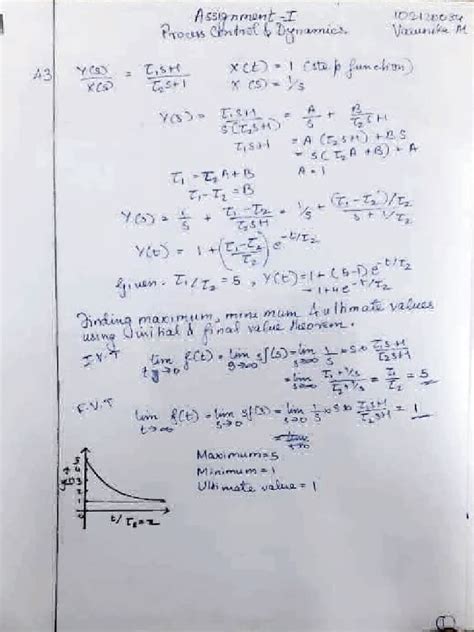 Assignment-I
Process Control & Dynamics
102120034
Varunika M
43 Y(s)/X(s) = τ₁s+1/τ₂s+1 X(t) = 1 (step function)
X(s) = 1/s
Y(s) = τ₁s+1/s(τ₂s+1) = A/s + B/τ₂s+1
τ₁s+1 = A(τ₂s+1) + BS
= s(τ₂A+B) + A
τ₁ = τ₂A+B A=1
τ₁-τ₂ = B
Y(s) = 1/s + τ₁-τ₂/τ₂s+1 = 1/s + (τ₁-τ₂)/τ₂/s+1/τ₂
Y(t) = 1+(τ₁-τ₂/τ₂) e^-t/τ₂
Given: τ₁/τ₂ = 5, Y(t) = 1+(5-1)e^-t/τ₂
= 1+4e^-t/τ₂
Finding maximum, minimum & ultimate values
using initial & final value theorem.
I.V.T lim t→0 f(t) = lim s→∞ sf(s) = lim s→∞ 1/s × s × τ₁s+1/τ₂s+1
= lim s→∞ τ₁+1/s/τ₂+1/s = τ₁/τ₂ = 5
F.V.T lim t→∞ f(t) = lim s→0 sf(s) = lim s→0 1/s × s × τ₁s+1/τ₂s+1 = 1
Maximum = 5
Minimum = 1
Ultimate value = 1
5
4
3
2
1
0